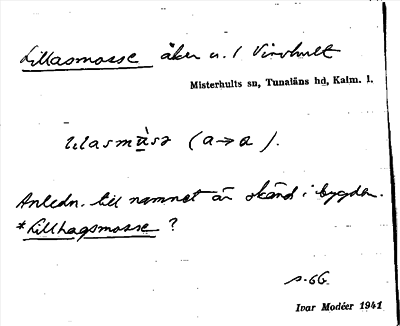 Lillasmosse åker u. / Virohult
Misterhults sn, Tunaläns hd, Kalm. l.
lılasmɑ̀sə (a→a).
Anledn. till namnet är okänd i bygden.
*Lillhagsmosse ?
s. 66.
Ivar Modéer 1941